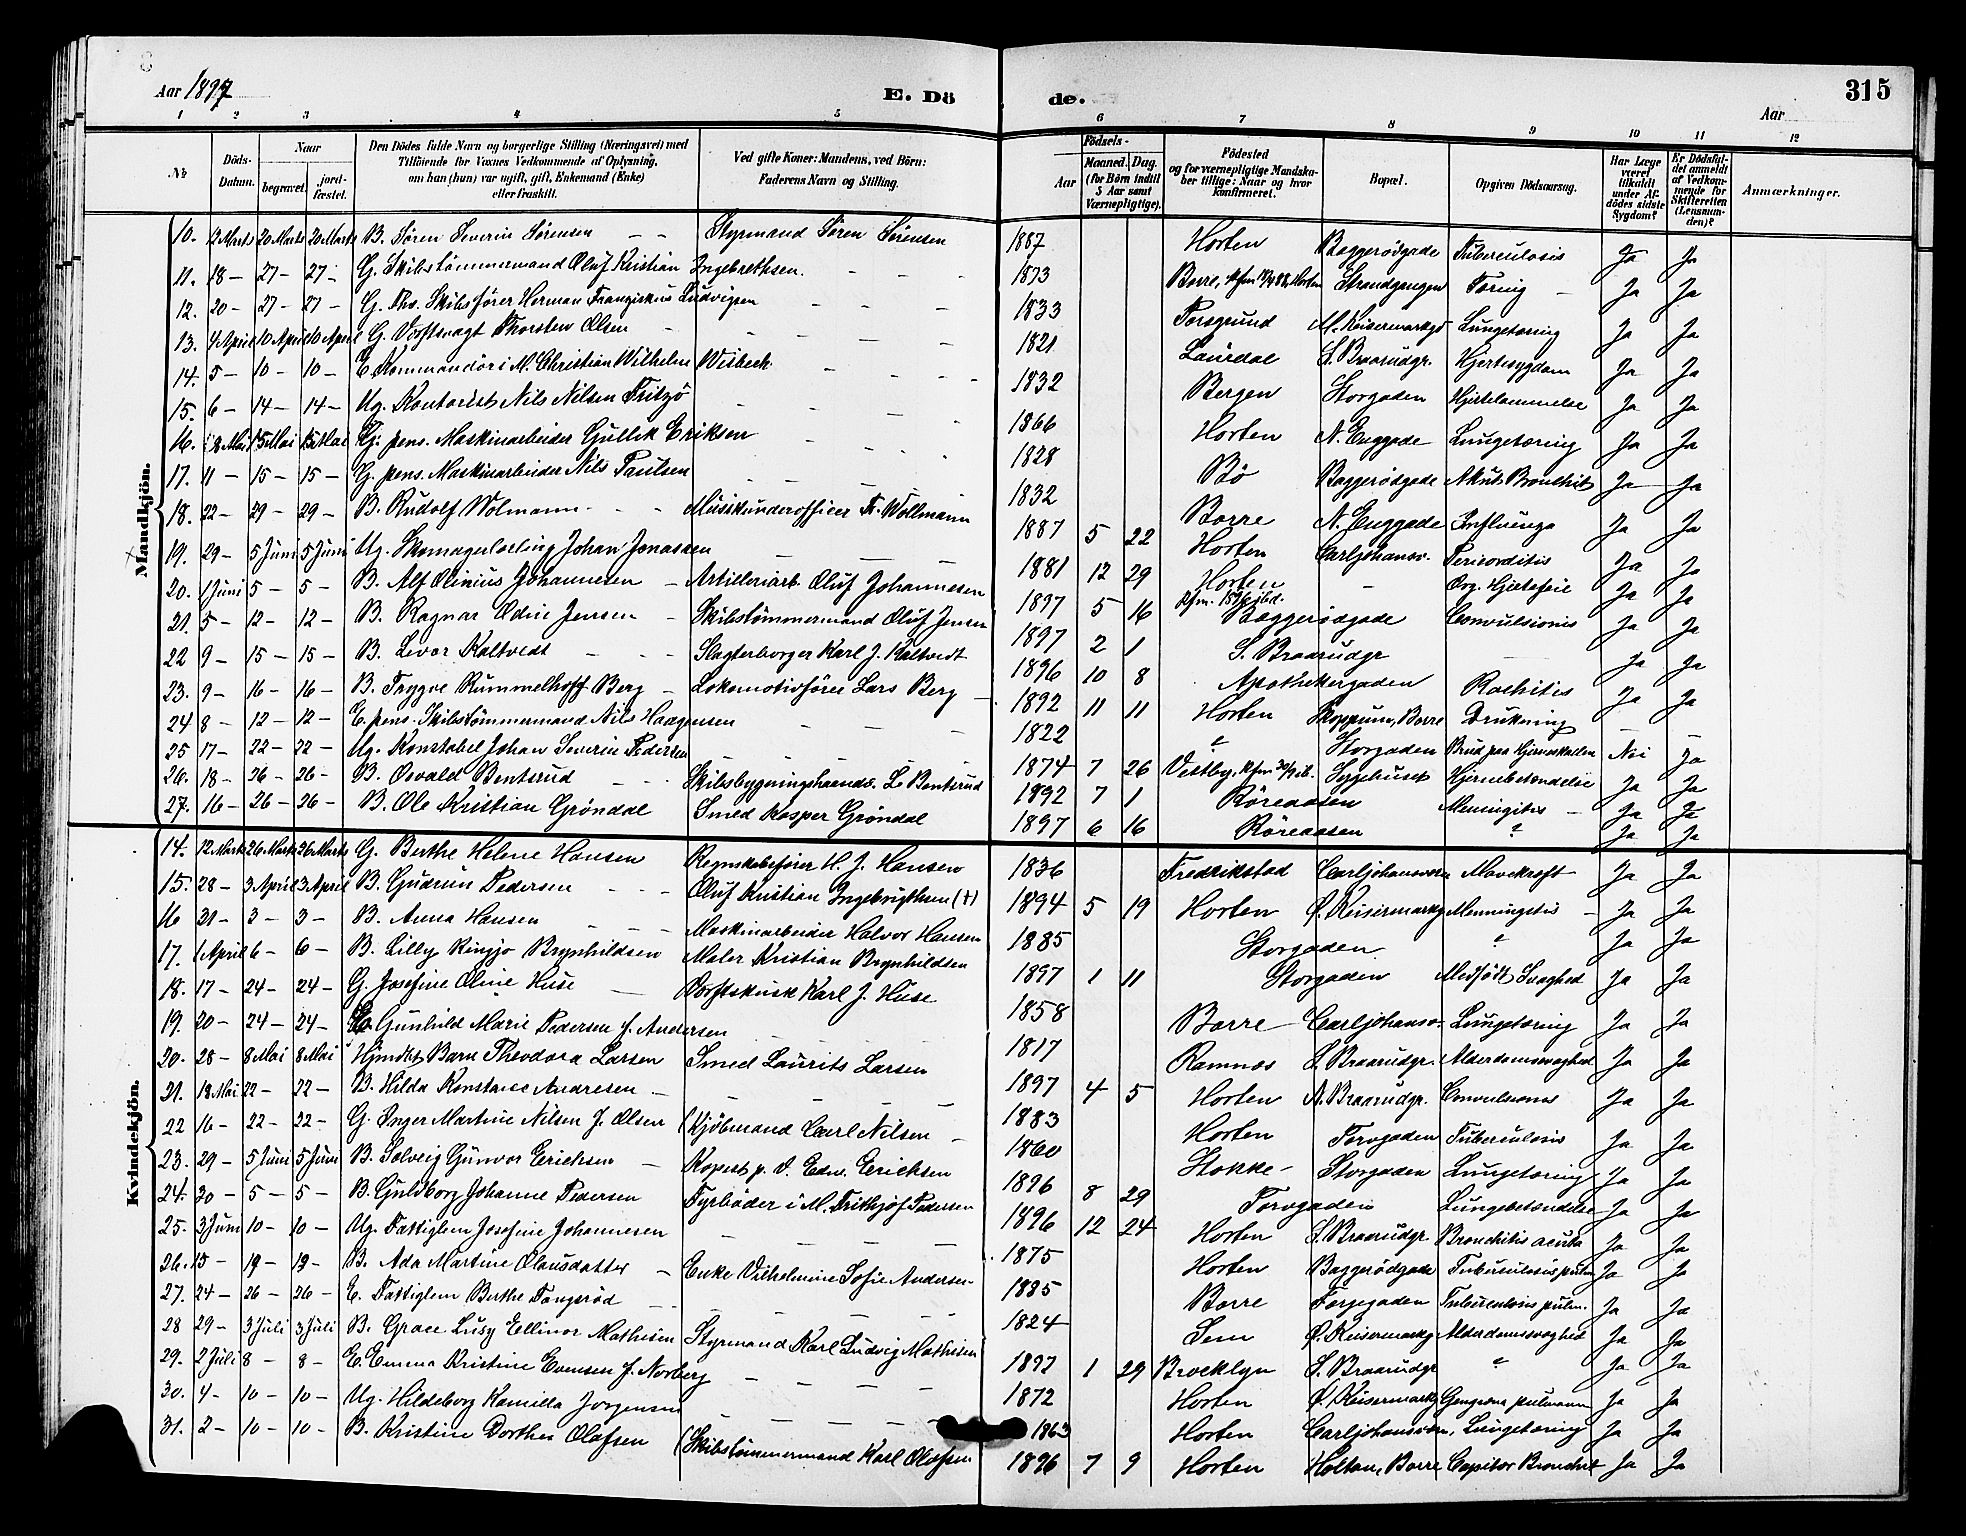 Aar 1897
E. Döde.
315
Aar
1 2 3 4 5 6 7 8 9 10 11 12
№
Döds-Datum.
Naar
begravet.
jordfæstet.
Den Dödes fulde Navn og borgerlige Stilling (Næringsvei) med Tilföiende for Voxnes Vedkommende af Oplysning, om han (hun) var ugift, gift, Enkemand (Enke) eller fraskilt.
Ved gifte Koner: Mandens, ved Börn: Faderens Navn og Stilling.
Födsels-
Aar
Maaned. Dag. (for Börn indtil 5 Aar samt Værnepligtige).
Födested og for værnepligtige Mandskaber tillige: Naar og hvor Konfirmeret.
Bopæl.
Opgiven Dödsaarsag.
Har Læge været tilkaldt under Afdödes sidste Sygdom?
Er Dödsfaldet anmeldt af Vedkommende for Skifteretten (Lensmanden)?
Anmærkninger.
Mandkjön.
10. 12 Marts 20 Marts 20 Marts B. Sören Severin Sörensen - - Styrmand Sören Sörensen 1887 Horten Baggerödgade Tuberculosis Ja Ja
11. 18 - 27 - 27 - G. Skibstömmermand Oluf Kristian Ingebrethsen - - - 1873 Borre, Horten Strandgangen Tæring - Ja Ja
12. 20 - 27 - 27 - G. Skibsförer Herman Franziskus Ludvigsen - - - 1833 Porsgrund Lungetæring Ja Ja
13. 4 April 10 April 10 April G. Værftsvagt Thorsten Olsen - - - 1821 Laurdal S. Braarudgr. Hjertesygdom Ja Ja
14. 5 - 10 - 10 - E. Kommandör i M. Christian Wilhelm Wisbech - - - 1832 Bergen Storgaden Hjertelammelse Ja Ja
15. 6 - 14 - 14 - Ug. Kontorist Nils Nilsen Fritzö - - - 1866 Horten N. Enggade Lungetæring Ja Ja
16. 8 Mai 15 Mai 15 Mai G. pens. Maskinarbeider Gullik Eriksen - - - 1828 Bö Baggerödgade Akut Bronchit Ja Ja
17. 11 - 15 - 15 - G. pens. Maskinarbeider Nils Paulsen - - - 1832 Borre N. Enggade Influenza Ja Ja
18. 22 - 29 - 29 - B. Rudolf Wolmann - - - Musikunderofficer Fr. Wollmann 1887 5 22 Horten Carljohansv. Pericorditis Ja Ja
19. 29 - 5 Juni 5 Juni Ug. Skomagerlærling Johan Jonassen - - - 1881 12 29 Horten - Org. Hjertefeil Ja Ja
20. 1 Juni 5 - 5 - B. Alf Olinius Johannesen - Artilleriarb. Oluf Johannesen 1897 5 16 Baggerödgade Convulsionis Ja Ja
21. 5 - 12 - 12 - B. Ragnar Odin Jensen - Skibstömmermand Oluf Jensen 1897 2 1 S. Braarudgr - Ja Ja
22 9 - 15 - 15 - B. Levor Kaltvedt - - - Slagterborger Karl J. Kaltvedt 1896 10 8 Apothekergaden Rachitis Ja Ja
23. 9 - 16 - 16 - B. Trygve Rummelhoff Berg - Lokomotivförer Lars Berg - 1892 11 11 Horten Skoppum, Borre Drukning - -
24 8 - 12 - 12 - E. pens. Skibstömmermand Nils Haagensen - - - 1822 ? Storgaden Brud paa Hjerneskallen Nei Ja
25 17 - 22 - 22 - Ug. Konstabel Johan Severin Pedersen - - - 1874 7 26 Vestby, Sygehuset Hjernebetændelse Ja Ja
26. 18 - 26 - 26 - B. Osvald Bentsrud - - Skibsbygningshaandv. L. Bentsrud 1892 7 1 Röreaasen Meningitis - Ja Ja
27. 16 - 26 - 26 - B. Ole Kristian Gröndal Smed Kasper Gröndal 1897 6 16 Röreaasen ? Ja Ja
Kvindekjön.
14. 12 Marts 26 Marts 26 Marts G. Berthe Helene Hansen Regnskabsförer H. J. Hansen 1836 Fredrikstad Carljohansværn Mavekræft Ja Ja
15. 28 - 3 April 3 April B. Gudrun Pedersen - - - Oluf Kristian Ingebrigthsen (+) 1894 5 19 Horten Ö. Keisermarkg Menningitis - Ja Ja
16 31 - 3 - 3 - B. Anna Hansen - - - Maskinarbeider Halvor Hansen 1885 Storgaden ? Ja Ja
17. 1 April 6 - 6 - B. Lilly Ringjo Brynhildsen Maler Kristian Brynhildsen 1897 1 11 Storgaden Medfödt Svaghed Ja Ja
18. 17 - 24 - 24 - G. Josefine Oline Huse - Værftskusk Karl J. Huse 1858 Borre Carljohansv. Lungetæring Ja Ja
19. 20 - 24 - 24 - E. Gunhild Marie Pedersen f. Andersen - - - 1817 Ramnæs S. Braarudgr. Alderdomssvaghed Ja Ja
20. 28 - 8 Mai 8 Mai Hjmdöbt Barn Theodora Larsen Smed Laurits Larsen 1897 4 5 Horten N. Braarudgr. Convulsiones Ja Ja
21. 18 Mai 22 - 22 - B. Hilda Konstance Andresen - - - 1883 Horten Torvgaden Tuberculosis Ja Ja
22 16 - 22 - 22 - G. Inger Martine Nilsen f. Olsen (Kjöbmand Carl Nilsen - 1860 Hokke - Storgaden Lungetæring Ja Ja
23. 29 - 5 Juni 5 Juni B. Solveig Gunvor Erichsen - Kopist p. V. Edw. Erichsen 1896 8 29 Torvgaden Lungebetændelse Ja Ja
24. 30 - 5 - 5 - B. Guldborg Johanne Pedersen Fyrböder i M. Frithjof Pedersen 1896 12 24 Horten S. Braarudgr. Bronchitis acuta Ja Ja
25. 3 Juni 10 - 10 - Ug. Fattiglem Josefine Johannesen - - - 1875 Horten Baggerödgade Tuberculosis pulm Ja Ja
26. 15 - 19 - 19 - B. Ada Martine Olausdatter - Enke Vilhelmine Sofie Andersen 1885 Borre Torvgaden Tuberculosis pulm. Ja Ja
27. 24 - 26 - 26 - E. Fattiglem Berthe Fangeröd - - - 1824 Sem Ö. Keisermarkg Alderdomssvaghed Ja Ja
28 29 - 3 Juli 3 Juli B. Grace Lusy Ellinor Mathisen Styrmand Karl Ludvig Mathisen 1897 1 29 Brocklyn S. Braarudgr ? Ja Ja
29. 2 Juli 8 - 8 - E. Emma Kristine Evensen f. Norberg - - - 1872 Horten Ö. Keisermarkg Gengræna pulmonum Ja Ja
30. 4 - 10 - 10 - Ug. Hildeborg Kamilla Jorgensen - - - 1863 Horten Carljohansværn, Lungetæring Ja Ja
31. 2 - 10 - 10 - B. Kristine Dorthea Olafsen (Skibstömmermand Karl Olafsen 1896 7 9 Horten Holtan, Borre Capilær Bronchit Ja Ja